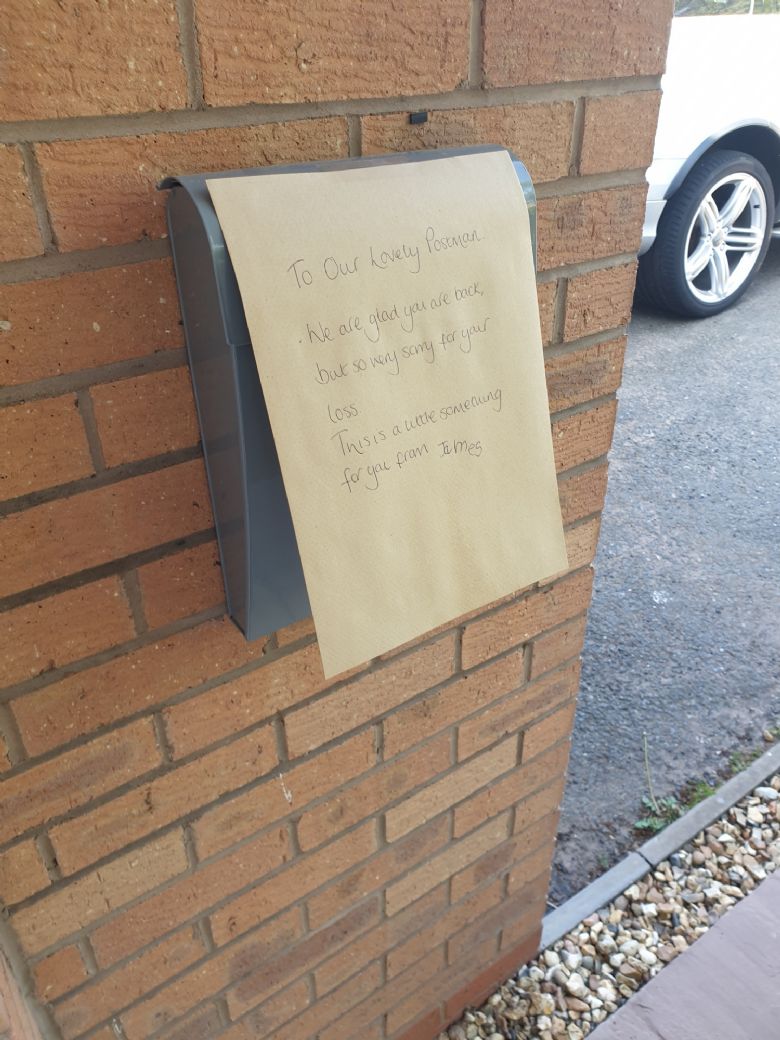 To Our Lovely Postman.
We are glad you are back,
but so very sorry for your
loss.
This is a little something
for you from James